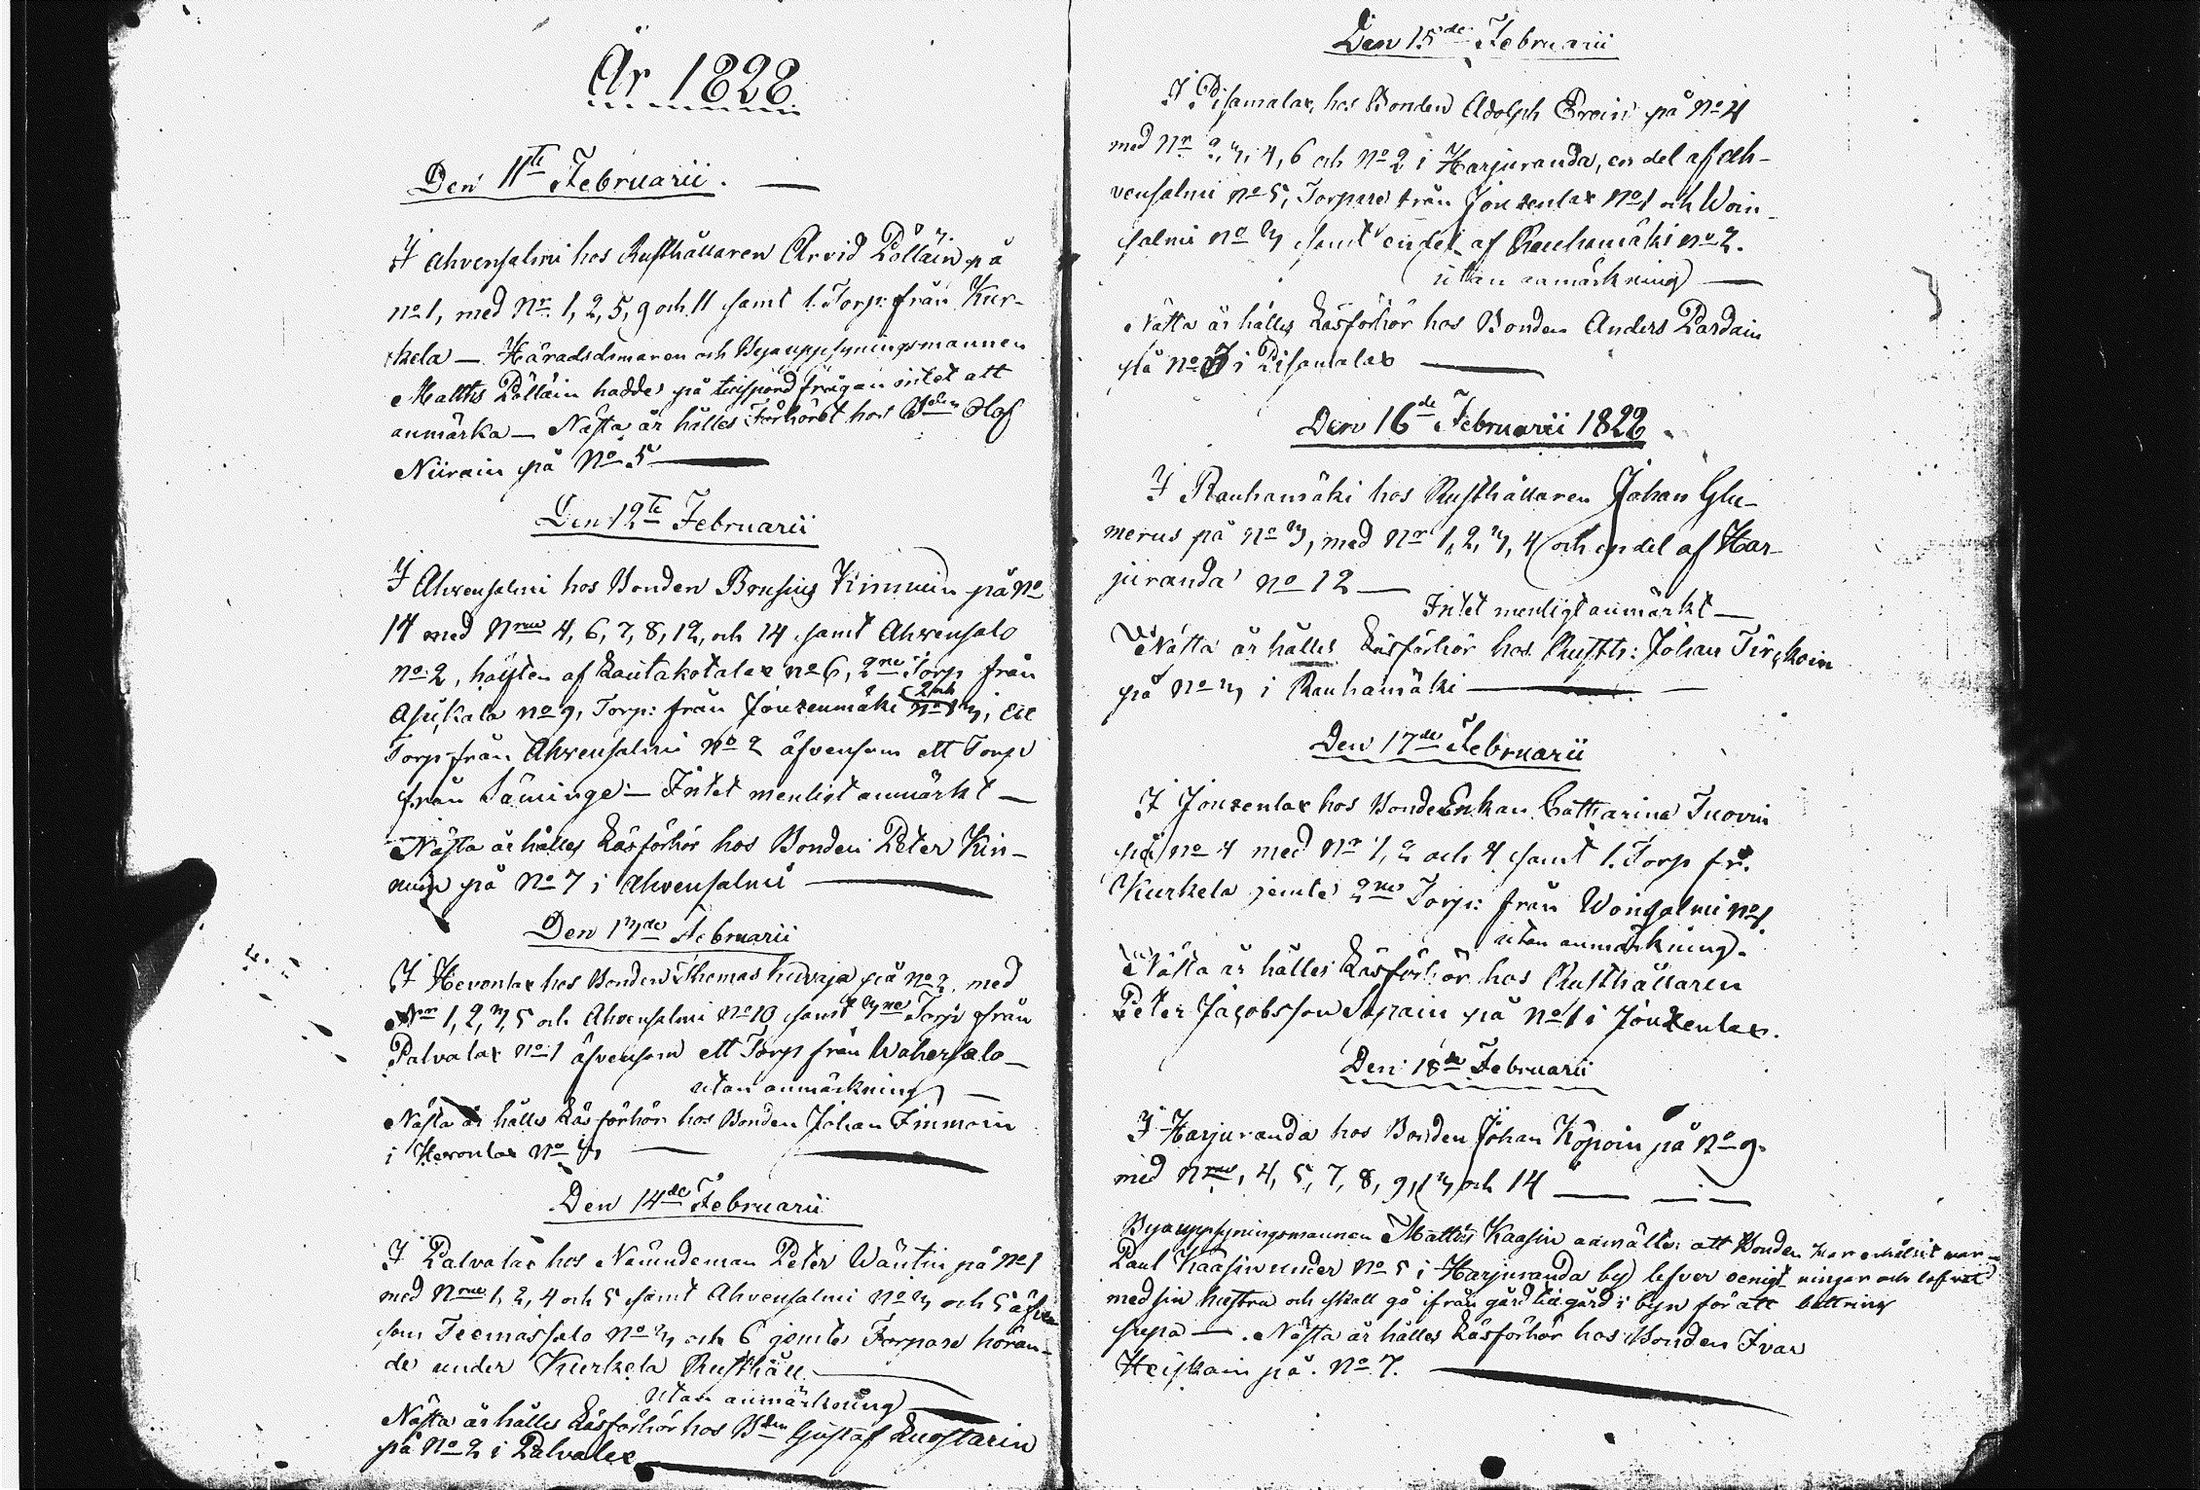 År 1828
Den 11te Februarii. —
I Ahvensalmi hos Rusthållaren Arvid Pölläin på
No 1, med Nr. 1, 2, 5, 9 och 11 samt 1. Torp: från Kur-
kela — Häradsdomaren och Byauppsyningsmannen
Matths Pölläin hade på tillspord frågan intet att
anmärka — Nästa år hålles Förhöret hos Bden Olof
Niirain på No 5 —
Den 12te Februarii
I Ahvensalmi hos Bonden Brusius Kinnuin på No
14 med Nrne 4, 6, 7, 8, 12, och 14 samt Ahvensalo
No 2, hälften af Lautakotalax No 6, 2ne Torp från
Asikala No 9, Torp: från Jouzenmäki 2 och 3, ett
Torp från Ahvensalmi No 2 äfvensom ett Torp
från Säminge — Intet menligt anmärkt —
Nästa år hålles Läsförhör hos Bonden Peter Kin-
nuin på No 7 i Ahvensalmi —
Den 13de Februarii
I Hevonlax hos Bonden Thomas på No 2. med
Nr 1, 2, 3, 5 och Ahvensalmi No 10 samt 3ne Torp från
Palvalax No 1 äfvensom ett Torp från Wahersalo —
utan anmärkning —
Nästa år hålles Läsförhör hos Bonden Johan Immoin
i Hevonlax No —
Den 14de Februarii
I Palvalax hos Nämndeman Peter Wäntin på No 1
med Nrne 1, 2, 4 och 5 samt Ahvensalmi No 3 och 5 äfven
som Teemassalo No 3 och 6 jemte Torpare höran-
de under Kurkela Rusthåll —
utan anmärkning —
Nästa år hålles Läsförhör hos Bden Gustaf Luostarin
på No 2 i Palvalax —
Den 15de Februarii
I Pisamalax, hos Bonden Adolph Eroin på No 4
med Nr 2, 3, 4, 6 och No 2 i Harjuranda, en del af Ah-
vensalmi No 5, Torpare från Jouzenlax No 1 och Woin-
salmi No 3 samt en del af Rauhamäki No 2.
utan anmärkning —
Nästa år hålles Läsförhör hos Bonden Anders Pardain
på No 3 i Pisamalax —
Den 16de Februarii 1828.
I Rauhamäki hos Rusthållaren Johan Glu-
merus på No 3, med Nr 1, 2, 3, 4 och en del af Har-
juranda No 12 —
Intet menligt anmärkt —
Nästa år hålles Läsförhör hos Rusth: Johan Tirskoin
på No 3 i Rauhamäki —
Den 17de Februarii
I Jouzenlax hos Bonde Enkan Catharina Inovin
på No 4 med Nr 1, 2 och 4 samt 1. Torp fr.
Kurkela jemte 2ne Torp: från Woinsalmi No 1
utan anmärkning.
Nästa år hålles Läsförhör hos Rusthållaren
Peter Jacobsson Sapain på No 1 i Jouzenlax.
Den 18de Februarii
I Harjuranda hos Bonden Johan Köpoin på No 9.
med Nrne, 4, 5, 7, 8, 9, 13 och 14 —
Byauppsyningsmannen Matths Kaasin anmälte att Bonden har erhållit var-
Paul Kaasin under No 5 i Harjuranda by lefver oenigt ningar och lofvat
med sin hustru och skall gå ifrån gård till gård i byn för att bättring
supa —. Nästa år hålles Läsförhör hos Bonden Ivar
Heiskain på No 7. —